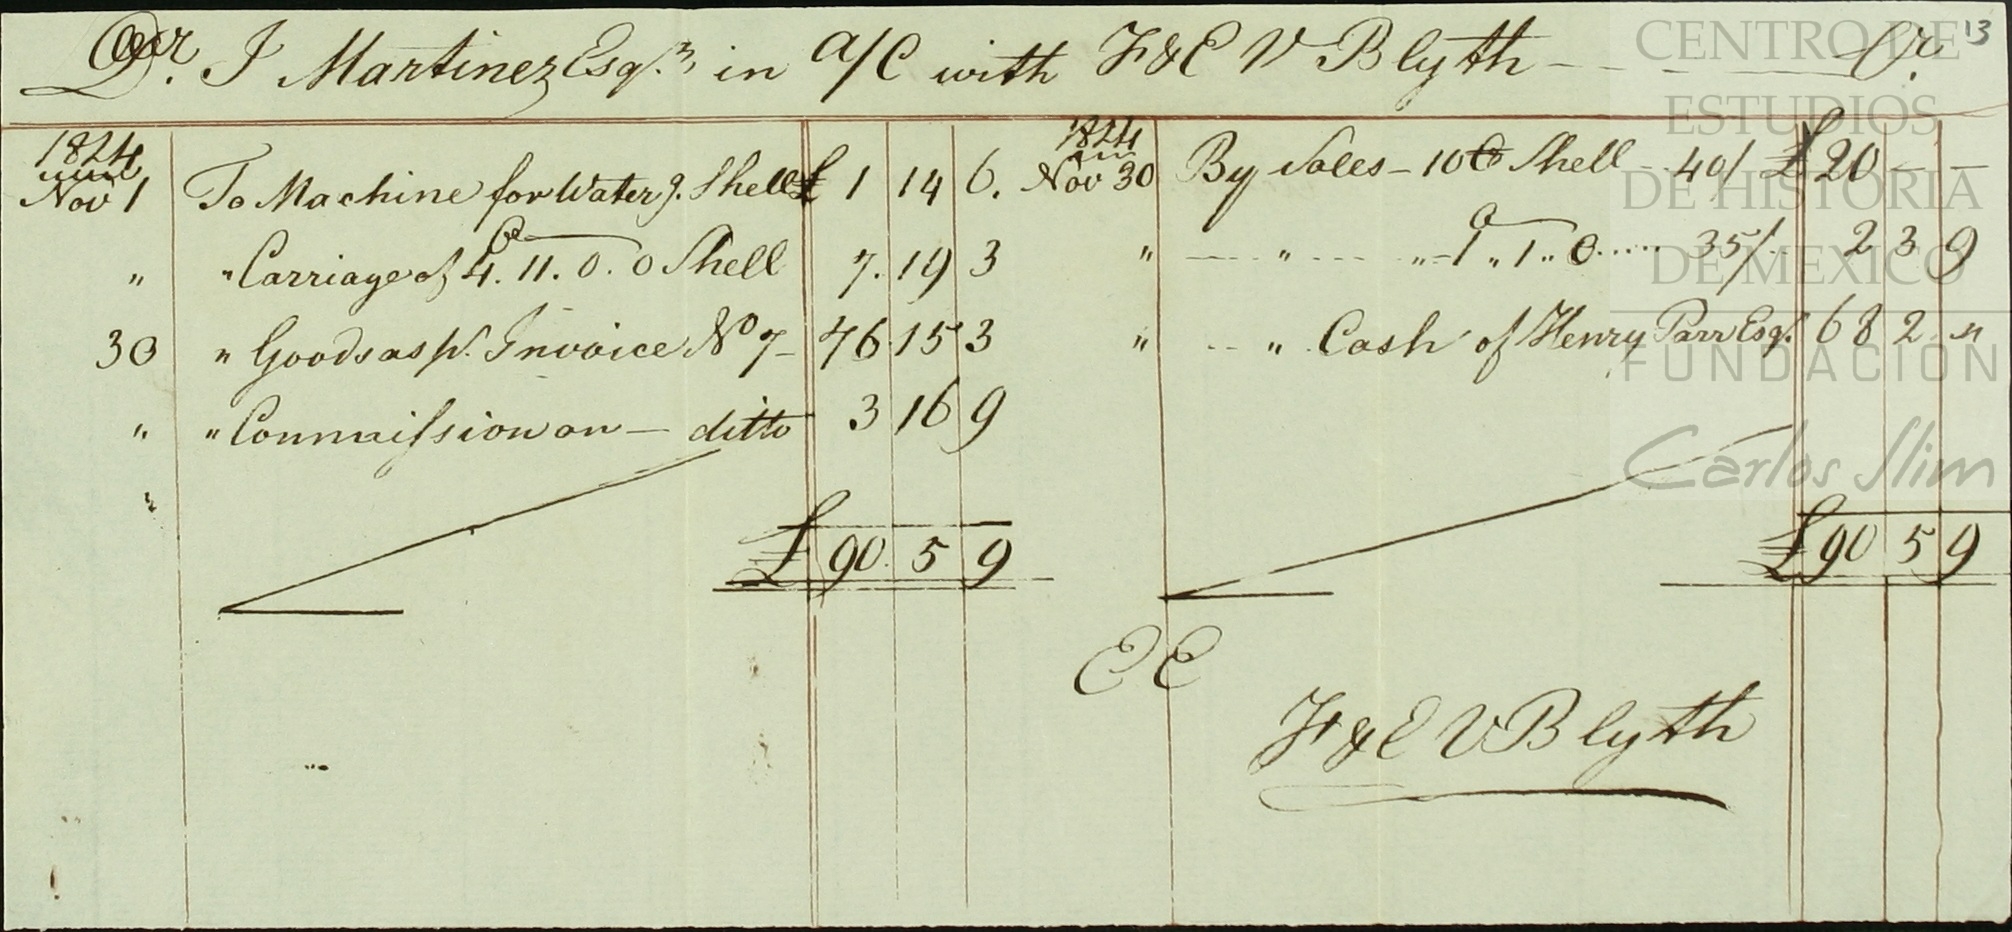 13
Dr. J Martinez Esqr. in a/c with F & E V Blyth Cr.
1824
Nov 1 To Machine for Waterg. Shell £ 1 14 6.
" " Carriage of 4. 11. 0. 0 Shell 7. 19 3
30 " Goods as pr. Invoice No 7 76. 15 3
" " Commission on — ditto 3 16 9
"
£ 90. 5 9
1824
Nov 30 By Sales – 10 Shell 40/ £ 20 — —
" " " 1 " 1 " 0 35/ 2 3 9
" " Cash of Henry Parr Esqr. 68 2 "
£ 90 5 9
E E
F & E V Blyth
CENTRO DE
ESTUDIOS
DE HISTORIA
DE MEXICO
FUNDACIÓN
Carlos Slim